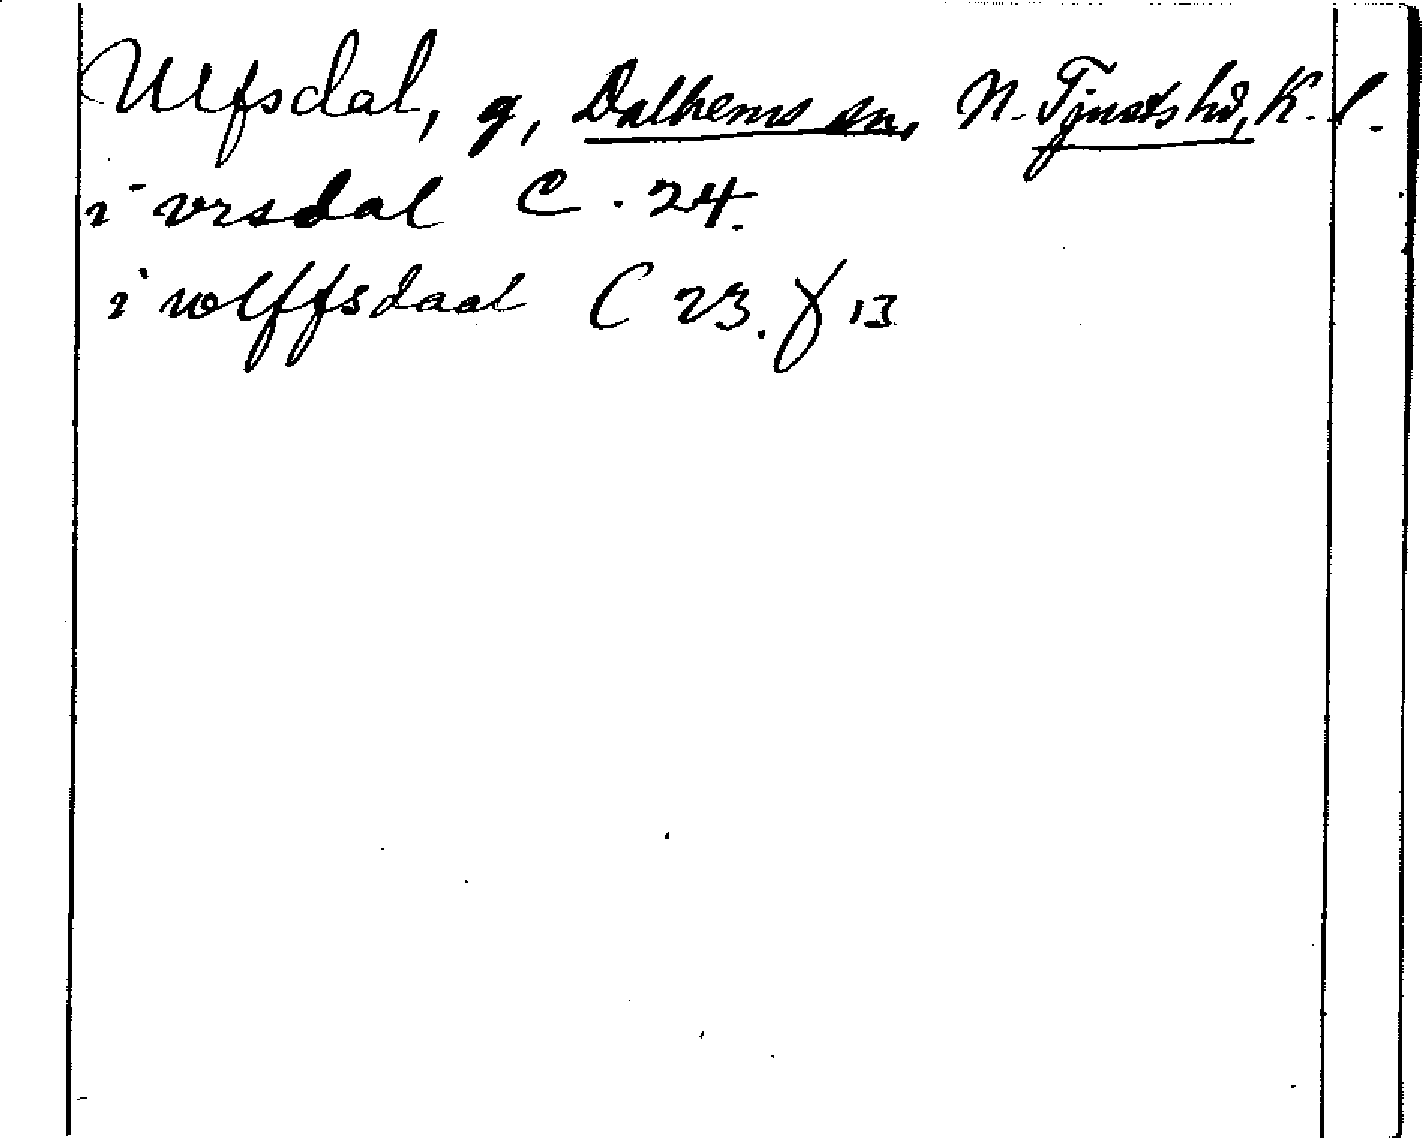 Ulfsdal, g, Dalhems sn, N. Tjusts hd, K. l.
i vrsdal C. 24.
i wlffsdaal C 23. γ 13